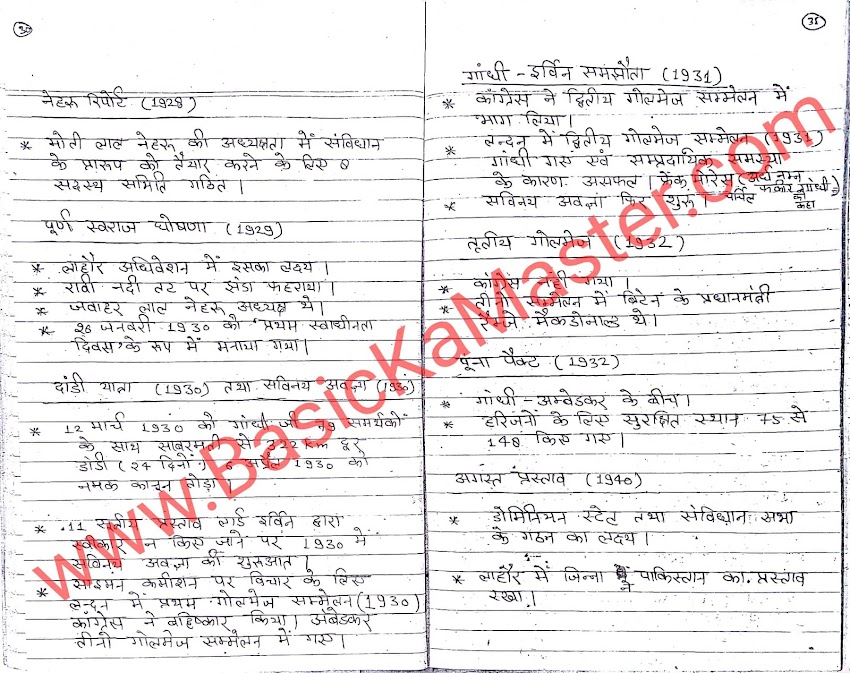 नेहरू रिपोर्ट (1928)
* मोती लाल नेहरू की अध्यक्षता में संविधान
के प्रारूप को तैयार करने के लिए 8
सदस्य समिति गठित।
पूर्ण स्वराज घोषणा (1929)
* लाहौर अधिवेशन में इसका लक्ष्य।
* रावी नदी तट पर झंडा फहराया।
* जवाहर लाल नेहरू अध्यक्ष थे।
* 26 जनवरी 1930 को 'प्रथम स्वाधीनता
दिवस' के रूप में मनाया गया।
दांडी यात्रा (1930) तथा सविनय अवज्ञा (1930)
* 12 मार्च 1930 को गांधी जी समर्थकों
के साथ साबरमती से 322 km दूर
डांडी (24 दिनों) 6 अप्रैल 1930 को
नमक कानून तोड़ा।
* 11 सूत्रीय प्रस्ताव लार्ड इर्विन द्वारा
स्वीकार न किए जाने पर 1930 में
सविनय अवज्ञा की शुरूआत।
* साइमन कमीशन पर विचार के लिए
लन्दन में प्रथम गोलमेज सम्मेलन (1930)
काँग्रेस ने बहिष्कार किया। अंबेडकर
तीनों गोलमेज सम्मेलन में गए।
35
गांधी - इर्विन समझौता (1931)
* काँग्रेस ने द्वितीय गोलमेज सम्मेलन में
भाग लिया।
* लन्दन में द्वितीय गोलमेज सम्मेलन (1931)
गांधी गए एवं सम्प्रदायिक समस्या
के कारण असफल। फ्रेंक मोरेस (अर्ध नग्न
फकीर गांधी को कहा
* सविनय अवज्ञा फिर शुरू। चर्चिल
तृतीय गोलमेज (1932)
* काँग्रेस नहीं गया।
* तीनों सम्मेलन में ब्रिटेन के प्रधानमंत्री
रैमजे मैकडोनाल्ड थे।
पूना पैक्ट (1932)
* गांधी - अम्बेडकर के बीच।
* हरिजनों के लिए सुरक्षित स्थान 75 से
148 किए गए।
अगस्त प्रस्ताव (1940)
* डोमिनियन स्टेट तथा संविधान सभा
के गठन का लक्ष्य।
* लाहौर में जिन्ना ने पाकिस्तान का प्रस्ताव
रखा।
www.BasicKaMaster.com